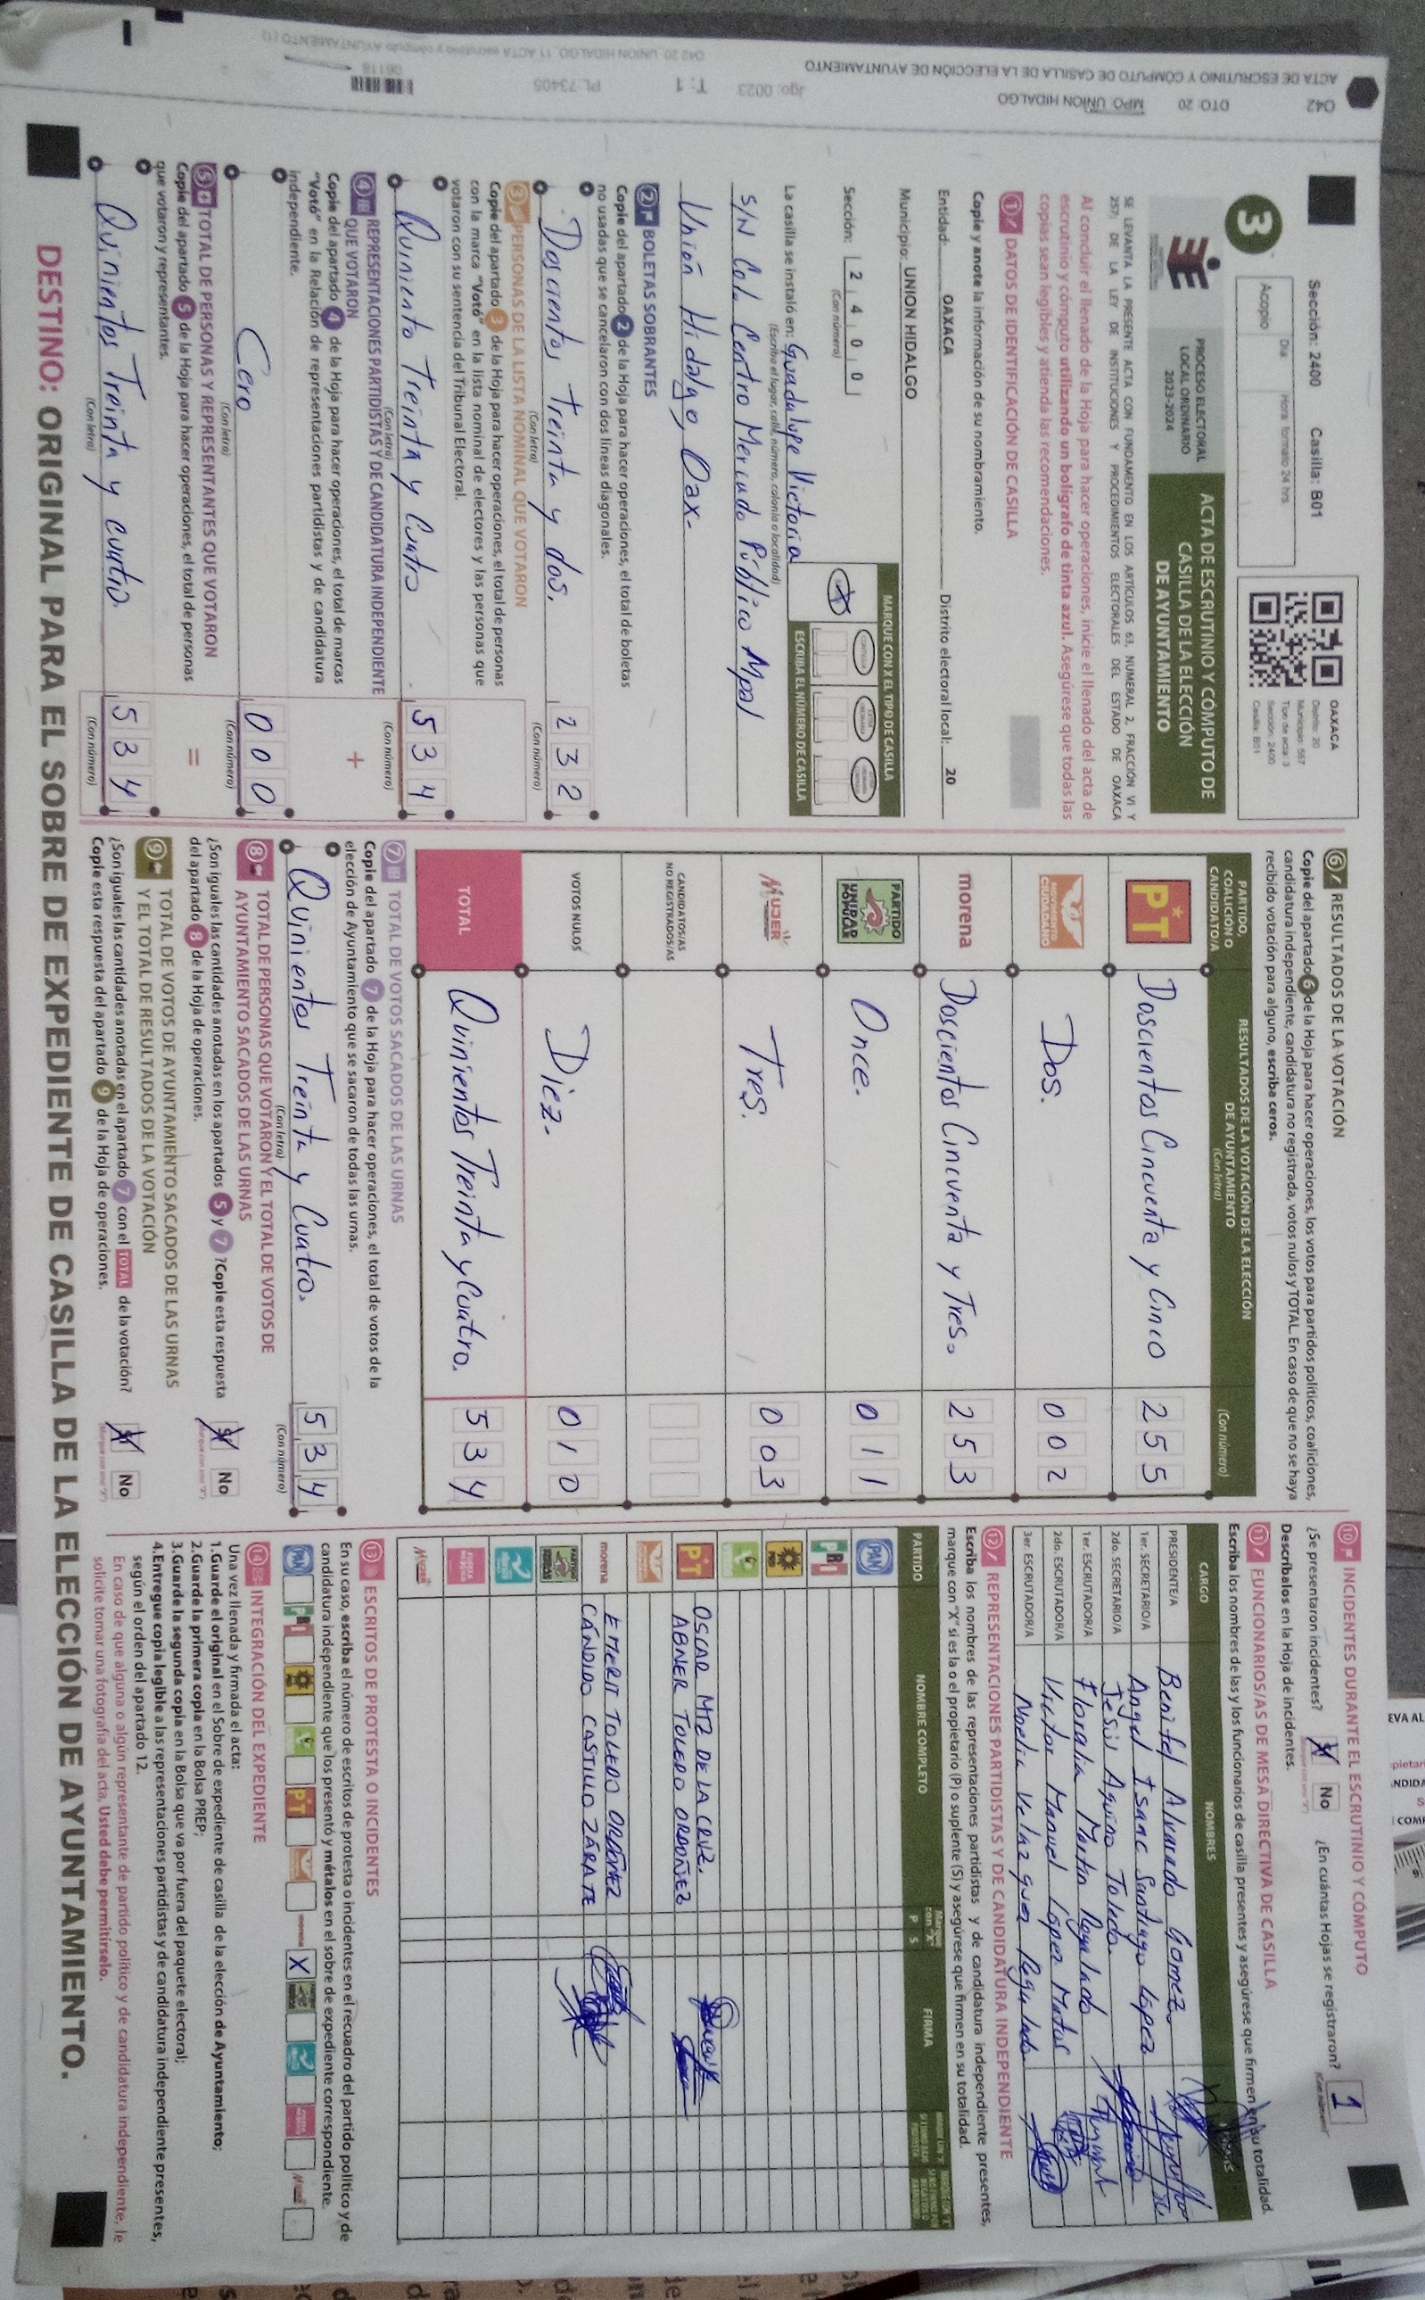 ACTA DE ESCRUTINIO Y CÓMPUTO DE CASILLA DE LA ELECCIÓN DE AYUNTAMIENTO
042 DTO: 20 MPO: UNION HIDALGO
Jgo: 0023 T: 1 PL-73405
06118
Sección: 2400 Casilla: B01
3
Acopio
Día
Hora formato 24 hrs.
OAXACA
Distrito: 20
Municipio: 557
Tipo de acta: 3
Sección: 2400
Casilla: B01
IEE
PROCESO ELECTORAL
LOCAL ORDINARIO
2023-2024
ACTA DE ESCRUTINIO Y CÓMPUTO DE
CASILLA DE LA ELECCIÓN
DE AYUNTAMIENTO
SE LEVANTA LA PRESENTE ACTA CON FUNDAMENTO EN LOS ARTÍCULOS 63, NUMERAL 2, FRACCIÓN VI Y
257; DE LA LEY DE INSTITUCIONES Y PROCEDIMIENTOS ELECTORALES DEL ESTADO DE OAXACA
Al concluir el llenado de la Hoja para hacer operaciones, inicie el llenado del acta de
escrutinio y cómputo utilizando un bolígrafo de tinta azul. Asegúrese que todas las
copias sean legibles y atienda las recomendaciones.
1 DATOS DE IDENTIFICACIÓN DE CASILLA
Copie y anote la información de su nombramiento.
Entidad: OAXACA Distrito electoral local: 20
Municipio: UNION HIDALGO
Sección: 2 4 0 0
(Con número)
MARQUE CON X EL TIPO DE CASILLA
ESCRIBA EL NÚMERO DE CASILLA
La casilla se instaló en: Guadalupe Victoria
(Escriba el lugar, calle, número, colonia o localidad)
S/N Col. Centro Mercado Público Mpal
Unión Hidalgo, Oax.
2 BOLETAS SOBRANTES
Copie del apartado 2 de la Hoja para hacer operaciones, el total de boletas
no usadas que se cancelaron con dos líneas diagonales.
Doscientos treinta y dos. 2 3 2
(Con letra) (Con número)
3 PERSONAS DE LA LISTA NOMINAL QUE VOTARON
Copie del apartado 3 de la Hoja para hacer operaciones, el total de personas
con la marca "Votó" en la lista nominal de electores y las personas que
votaron con su sentencia del Tribunal Electoral.
Quiniento Treinta y Cuatro 5 3 4
(Con letra) (Con número)
4 REPRESENTACIONES PARTIDISTAS Y DE CANDIDATURA INDEPENDIENTE
QUE VOTARON +
Copie del apartado 4 de la Hoja para hacer operaciones, el total de marcas
"Votó" en la Relación de representaciones partidistas y de candidatura
independiente.
Cero 0 0 0
(Con letra) (Con número)
5 TOTAL DE PERSONAS Y REPRESENTANTES QUE VOTARON =
Copie del apartado 5 de la Hoja para hacer operaciones, el total de personas
que votaron y representantes.
Quinientos Treinta y cuatro. 5 3 4
(Con letra) (Con número)
6 RESULTADOS DE LA VOTACIÓN
Copie del apartado 6 de la Hoja para hacer operaciones, los votos para partidos políticos, coaliciones,
candidatura independiente, candidatura no registrada, votos nulos y TOTAL. En caso de que no se haya
recibido votación para alguno, escriba ceros.
PARTIDO,
COALICIÓN O
CANDIDATO/A
RESULTADOS DE LA VOTACIÓN DE LA ELECCIÓN
DE AYUNTAMIENTO
(Con letra) (Con número)
PT Doscientos Cincuenta y Cinco 2 5 5
MOVIMIENTO CIUDADANO Dos. 0 0 2
morena Doscientos Cincuenta y Tres. 2 5 3
PARTIDO UNIDAD POPULAR Once. 0 1 1
MUJER Tres. 0 0 3
CANDIDATOS/AS
NO REGISTRADOS/AS
VOTOS NULOS Diez. 0 1 0
TOTAL Quinientos Treinta y Cuatro. 5 3 4
7 TOTAL DE VOTOS SACADOS DE LAS URNAS
Copie del apartado 7 de la Hoja para hacer operaciones, el total de votos de la
elección de Ayuntamiento que se sacaron de todas las urnas.
Quinientos Treinta y Cuatro. 5 3 4
(Con letra) (Con número)
8 TOTAL DE PERSONAS QUE VOTARON Y EL TOTAL DE VOTOS DE
AYUNTAMIENTO SACADOS DE LAS URNAS
¿Son iguales las cantidades anotadas en los apartados 5 y 7 ? Copie esta respuesta
del apartado 8 de la Hoja de operaciones.
Sí No
9 TOTAL DE VOTOS DE AYUNTAMIENTO SACADOS DE LAS URNAS
Y EL TOTAL DE RESULTADOS DE LA VOTACIÓN
¿Son iguales las cantidades anotadas en el apartado 7 con el TOTAL de la votación?
Copie esta respuesta del apartado 9 de la Hoja de operaciones.
Sí No
10 INCIDENTES DURANTE EL ESCRUTINIO Y CÓMPUTO
¿Se presentaron incidentes? Sí No ¿En cuántas Hojas se registraron? 1
Descríbalos en la Hoja de incidentes.
11 FUNCIONARIOS/AS DE MESA DIRECTIVA DE CASILLA
Escriba los nombres de las y los funcionarios de casilla presentes y asegúrese que firmen en su totalidad.
CARGO NOMBRES
PRESIDENTE/A Benitel Alvarado Gomez
1er. SECRETARIO/A Angel Isaac Santiago López
2do. SECRETARIO/A Jesús Aquino Toledo
1er. ESCRUTADOR/A Floralia Martan Regalado
2do. ESCRUTADOR/A Victor Manuel López Matus
3er. ESCRUTADOR/A Noelia Velazquez Regalado
12 REPRESENTACIONES PARTIDISTAS Y DE CANDIDATURA INDEPENDIENTE
Escriba los nombres de las representaciones partidistas y de candidatura independiente presentes,
marque con "X" si es la o el propietario (P) o suplente (S) y asegúrese que firmen en su totalidad.
PARTIDO NOMBRE COMPLETO Marque con "X" P S FIRMA
PAN
PRI
PRD
PT OSCAR MTZ DE LA CRUZ.
ABNER TOLEDO ORDOÑEZ
morena EMERIT TOLEDO ORDOÑEZ
CÁNDIDO CASTILLO ZÁRATE
MUJER
13 ESCRITOS DE PROTESTA O INCIDENTES
En su caso, escriba el número de escritos de protesta o incidentes en el recuadro del partido político y de
candidatura independiente que los presentó y métalos en el sobre de expediente correspondiente.
PAN PRI PRD PT morena X
14 INTEGRACIÓN DEL EXPEDIENTE
Una vez llenada y firmada el acta:
1.Guarde el original en el Sobre de expediente de casilla de la elección de Ayuntamiento;
2.Guarde la primera copia en la Bolsa PREP;
3.Guarde la segunda copia en la Bolsa que va por fuera del paquete electoral;
4.Entregue copia legible a las representaciones partidistas y de candidatura independiente presentes,
según el orden del apartado 12.
En caso de que alguna o algún representante de partido político y de candidatura independiente, le
solicite tomar una fotografía del acta, Usted debe permitírselo.
DESTINO: ORIGINAL PARA EL SOBRE DE EXPEDIENTE DE CASILLA DE LA ELECCIÓN DE AYUNTAMIENTO.